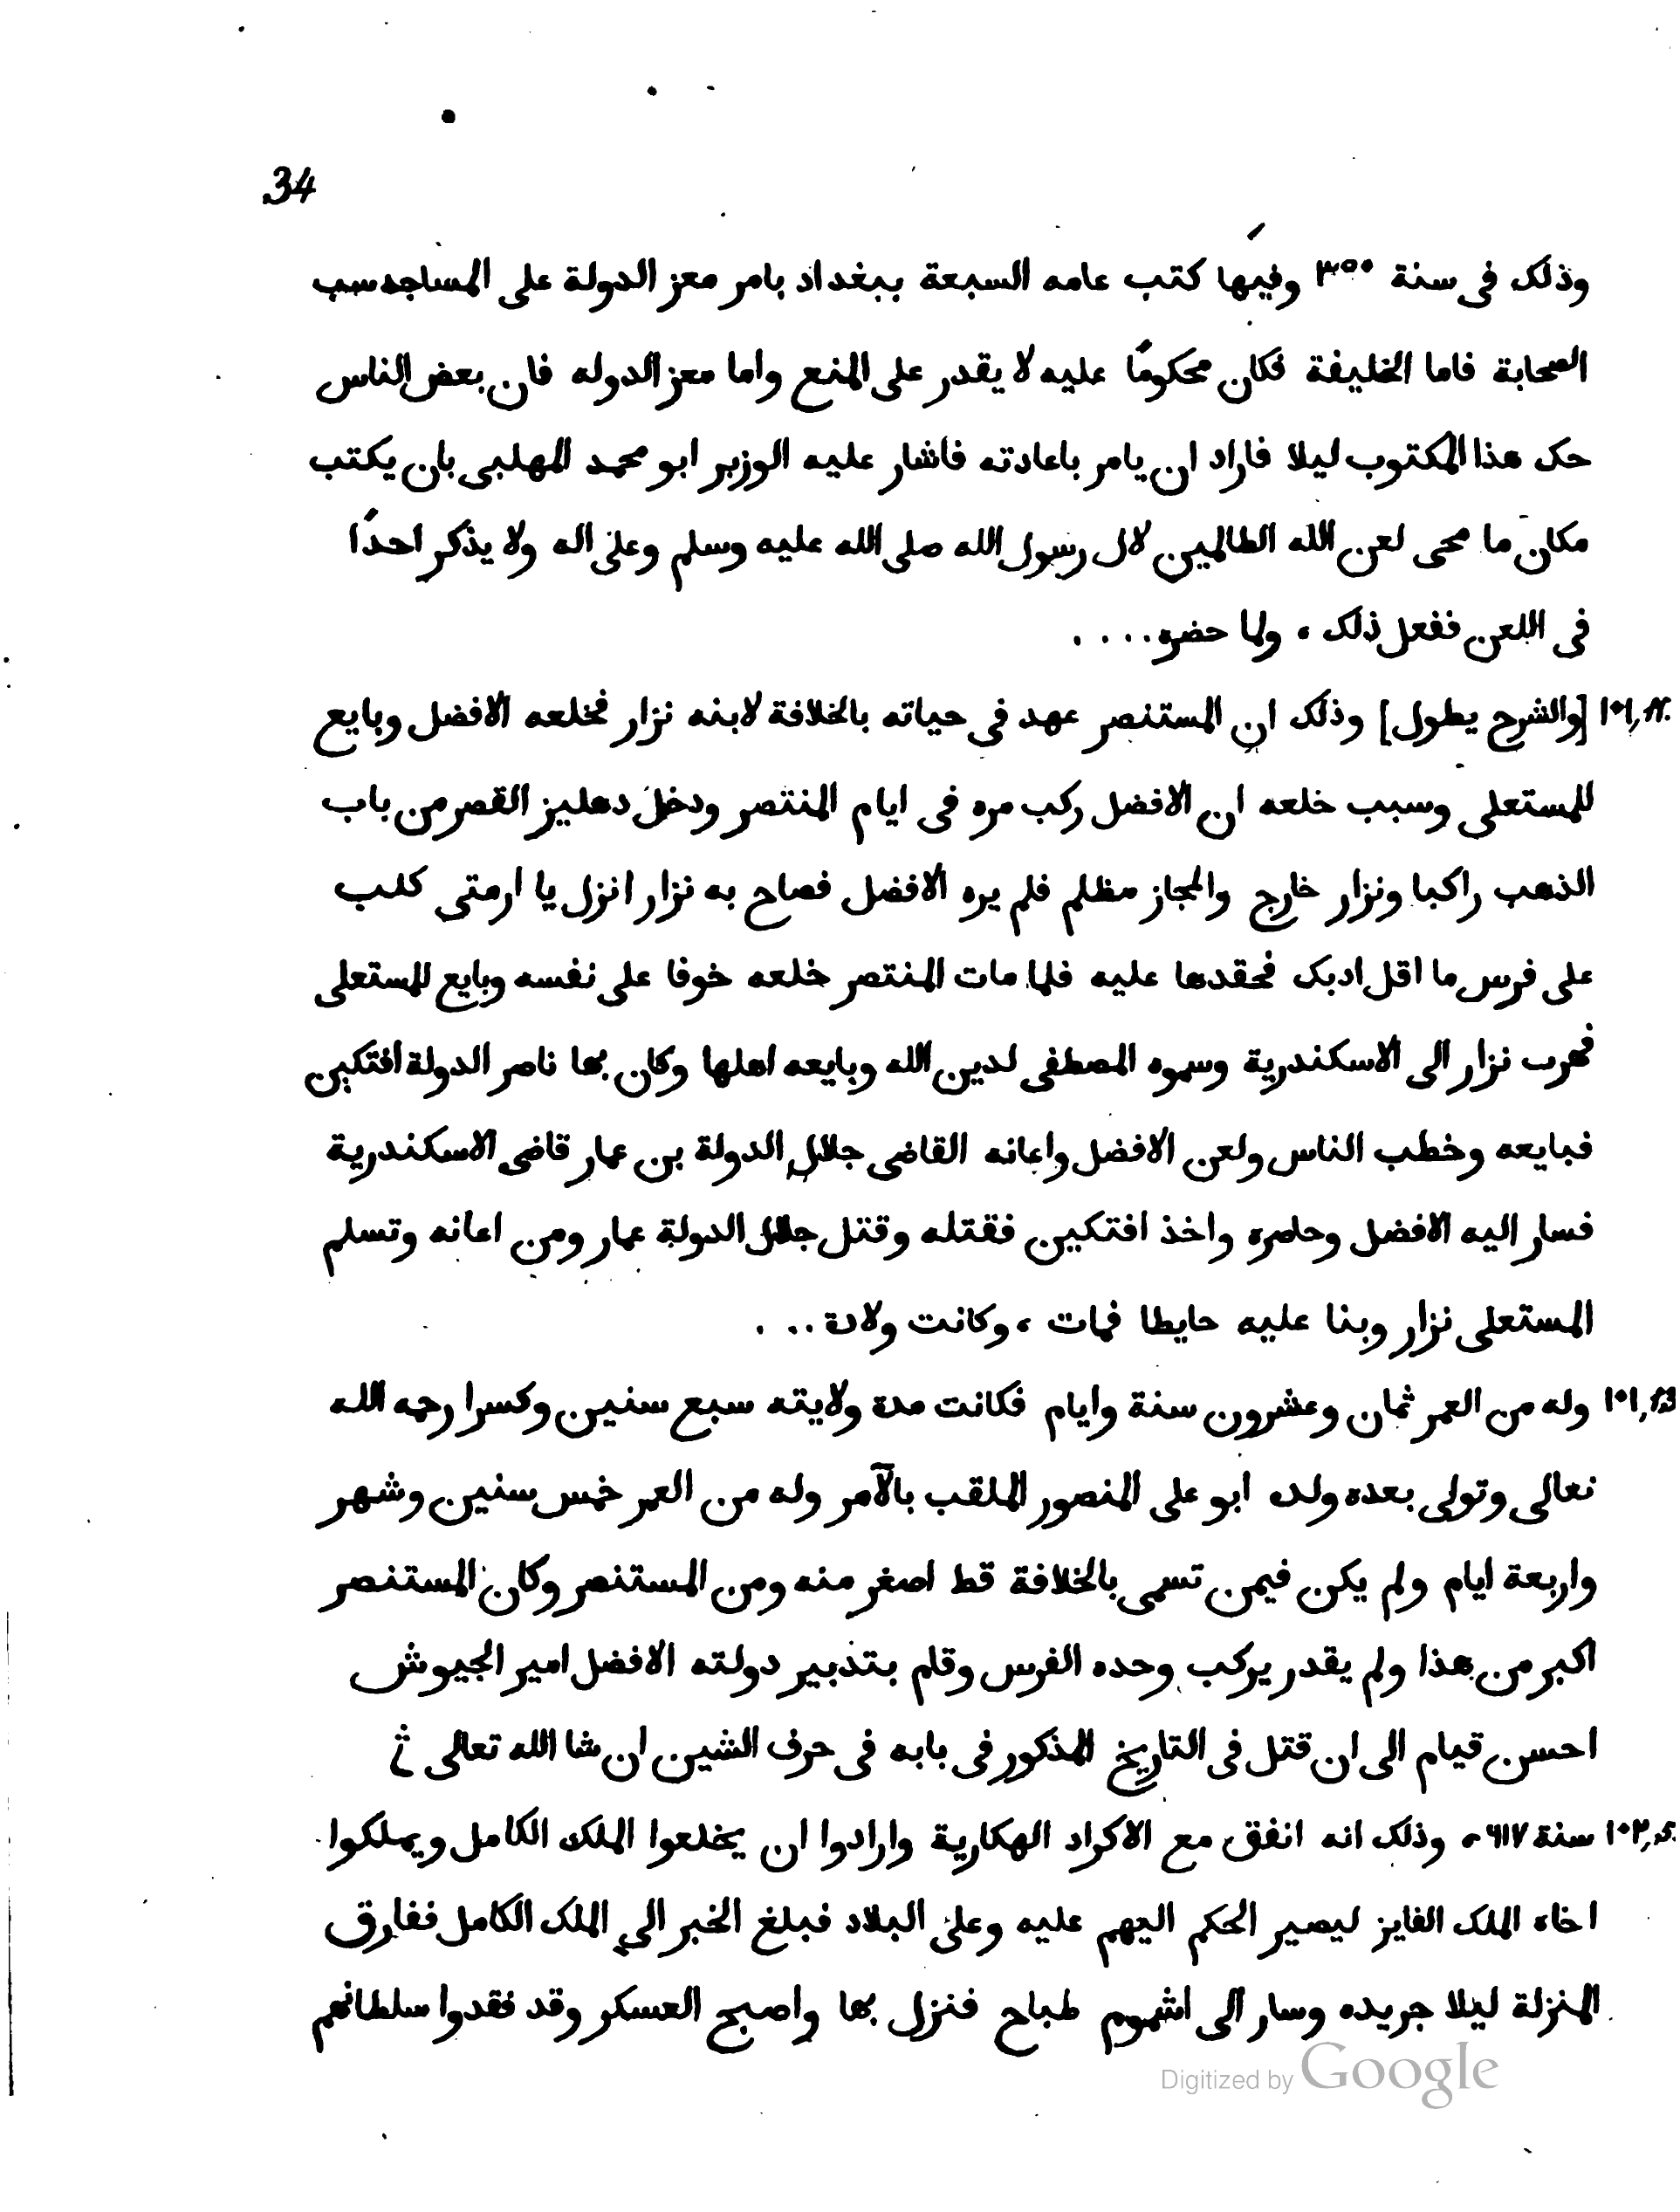 34
وذلك فى سنة ٣٥٠ وفيها كتب عامه السبعة ببغداد بامر معز الدولة على المساجد سب
الصحابة فاما الخليفة فكان محكومًا عليه لا يقدر على المنع واما معز الدوله فان بعض الناس
حك هذا المكتوب ليلا فاراد ان يامر باعادته فاشار عليه الوزير ابو محمد المهلبى بان يكتب
مكان ما محى لعن الله الظالمين لال رسول الله صلى الله عليه وسلم وعلى اله ولا يذكر احدًا
فى اللعن ففعل ذلك ، ولما حضره ....
[والشرح يطول] وذلك ان المستنصر عهد فى حياته بالخلافة لابنه نزار فخلعه الافضل وبايع
للمستعلى وسبب خلعه ان الافضل ركب مره فى ايام المنتصر ودخل دهليز القصر من باب
الذهب راكبا ونزار خارج والمجاز مظلم فلم يره الافضل فصاح به نزار انزل يا ارمتى كلب
على فرس ما اقل ادبك فحقدها عليه فلما مات المنتصر خلعه خوفا على نفسه وبايع للمستعلى
فهرب نزار الى الاسكندرية وسموه المصطفى لدين الله وبايعه اهلها وكان بها ناصر الدولة افتكين
فبايعه وخطب الناس ولعن الافضل واعانه القاضى جلال الدولة بن عمار قاضى الاسكندرية
فسار اليه الافضل وحاصره واخذ افتكين فقتله وقتل جلال الدولة عمار ومن اعانه وتسلم
المستعلى نزار وبنا عليه حايطا فمات ، وكانت ولادة ...
وله من العمر ثمان وعشرون سنة وايام فكانت مدة ولايته سبع سنين وكسرا رحمه الله
تعالى وتولى بعده ولده ابو على المنصور الملقب بالآمر وله من العمر خمس سنين وشهر
واربعة ايام ولم يكن فيمن تسمى بالخلافة قط اصغر منه ومن المستنصر وكان المستنصر
اكبر من هذا ولم يقدر يركب وحده الفرس وقام بتدبير دولته الافضل امير الجيوش
احسن قيام الى ان قتل فى التاريخ المذكور فى بابه فى حرف الشين ان شا الله تعالى ثم
سنة ٦١٧ ، وذلك انه اتفق مع الاكراد الهكارية وارادوا ان يخلعوا الملك الكامل ويملكوا
اخاه الملك الفايز ليصير الحكم اليهم عليه وعلى البلاد فبلغ الخبر الى الملك الكامل ففارق
المنزلة ليلا جريده وسار الى اشموم طباح فنزل بها واصبح العسكر وقد فقدوا سلطانهم
Digitized by Google